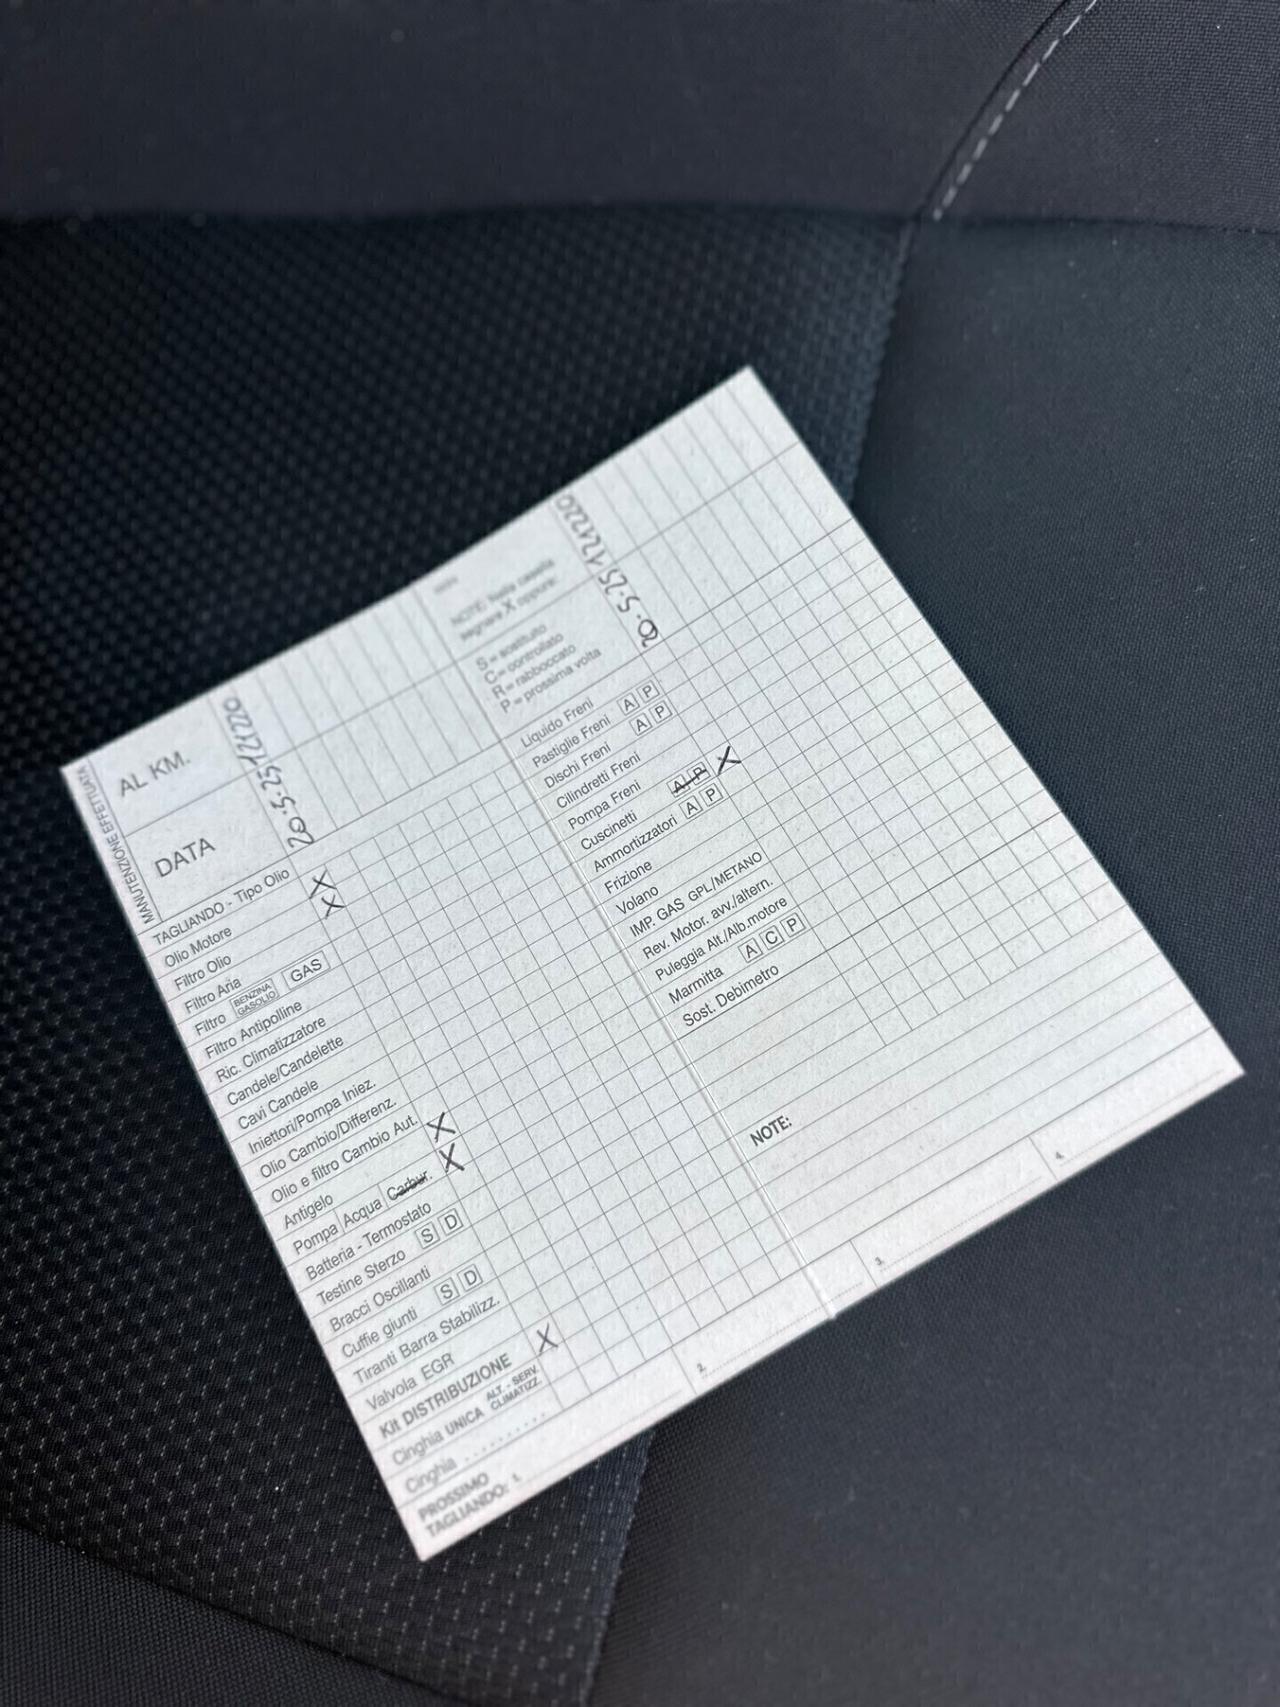 MANUTENZIONE EFFETTUATA
AL KM. 121220
DATA 20.5.25
TAGLIANDO - Tipo Olio
Olio Motore X
Filtro Olio X
Filtro Aria
Filtro BENZINA GASOLIO GAS
Filtro Antipolline
Ric. Climatizzatore
Candele/Candelette
Cavi Candele
Iniettori/Pompa Iniez.
Olio Cambio/Differenz.
Olio e filtro Cambio Aut.
Antigelo X
Pompa Acqua Carbur. X
Batteria - Termostato
Testine Sterzo S D
Bracci Oscillanti
Cuffie giunti S D
Tiranti Barra Stabilizz.
Valvola EGR
Kit DISTRIBUZIONE X
Cinghia UNICA ALT. - SERV. CLIMATIZZ.
Cinghia ..........
PROSSIMO
TAGLIANDO: 1.
2.
NOTE: Nelle caselle
segnare X oppure:
S = sostituito
C = controllato
R = rabboccato
P = prossima volta
121220
20.5.25
Liquido Freni
Pastiglie Freni A P
Dischi Freni A P
Cilindretti Freni
Pompa Freni
Cuscinetti A P X
Ammortizzatori A P
Frizione
Volano
IMP. GAS GPL/METANO
Rev. Motor. avv./altern.
Puleggia Alt./Alb.motore
Marmitta A C P
Sost. Debimetro
NOTE:
3.
4.